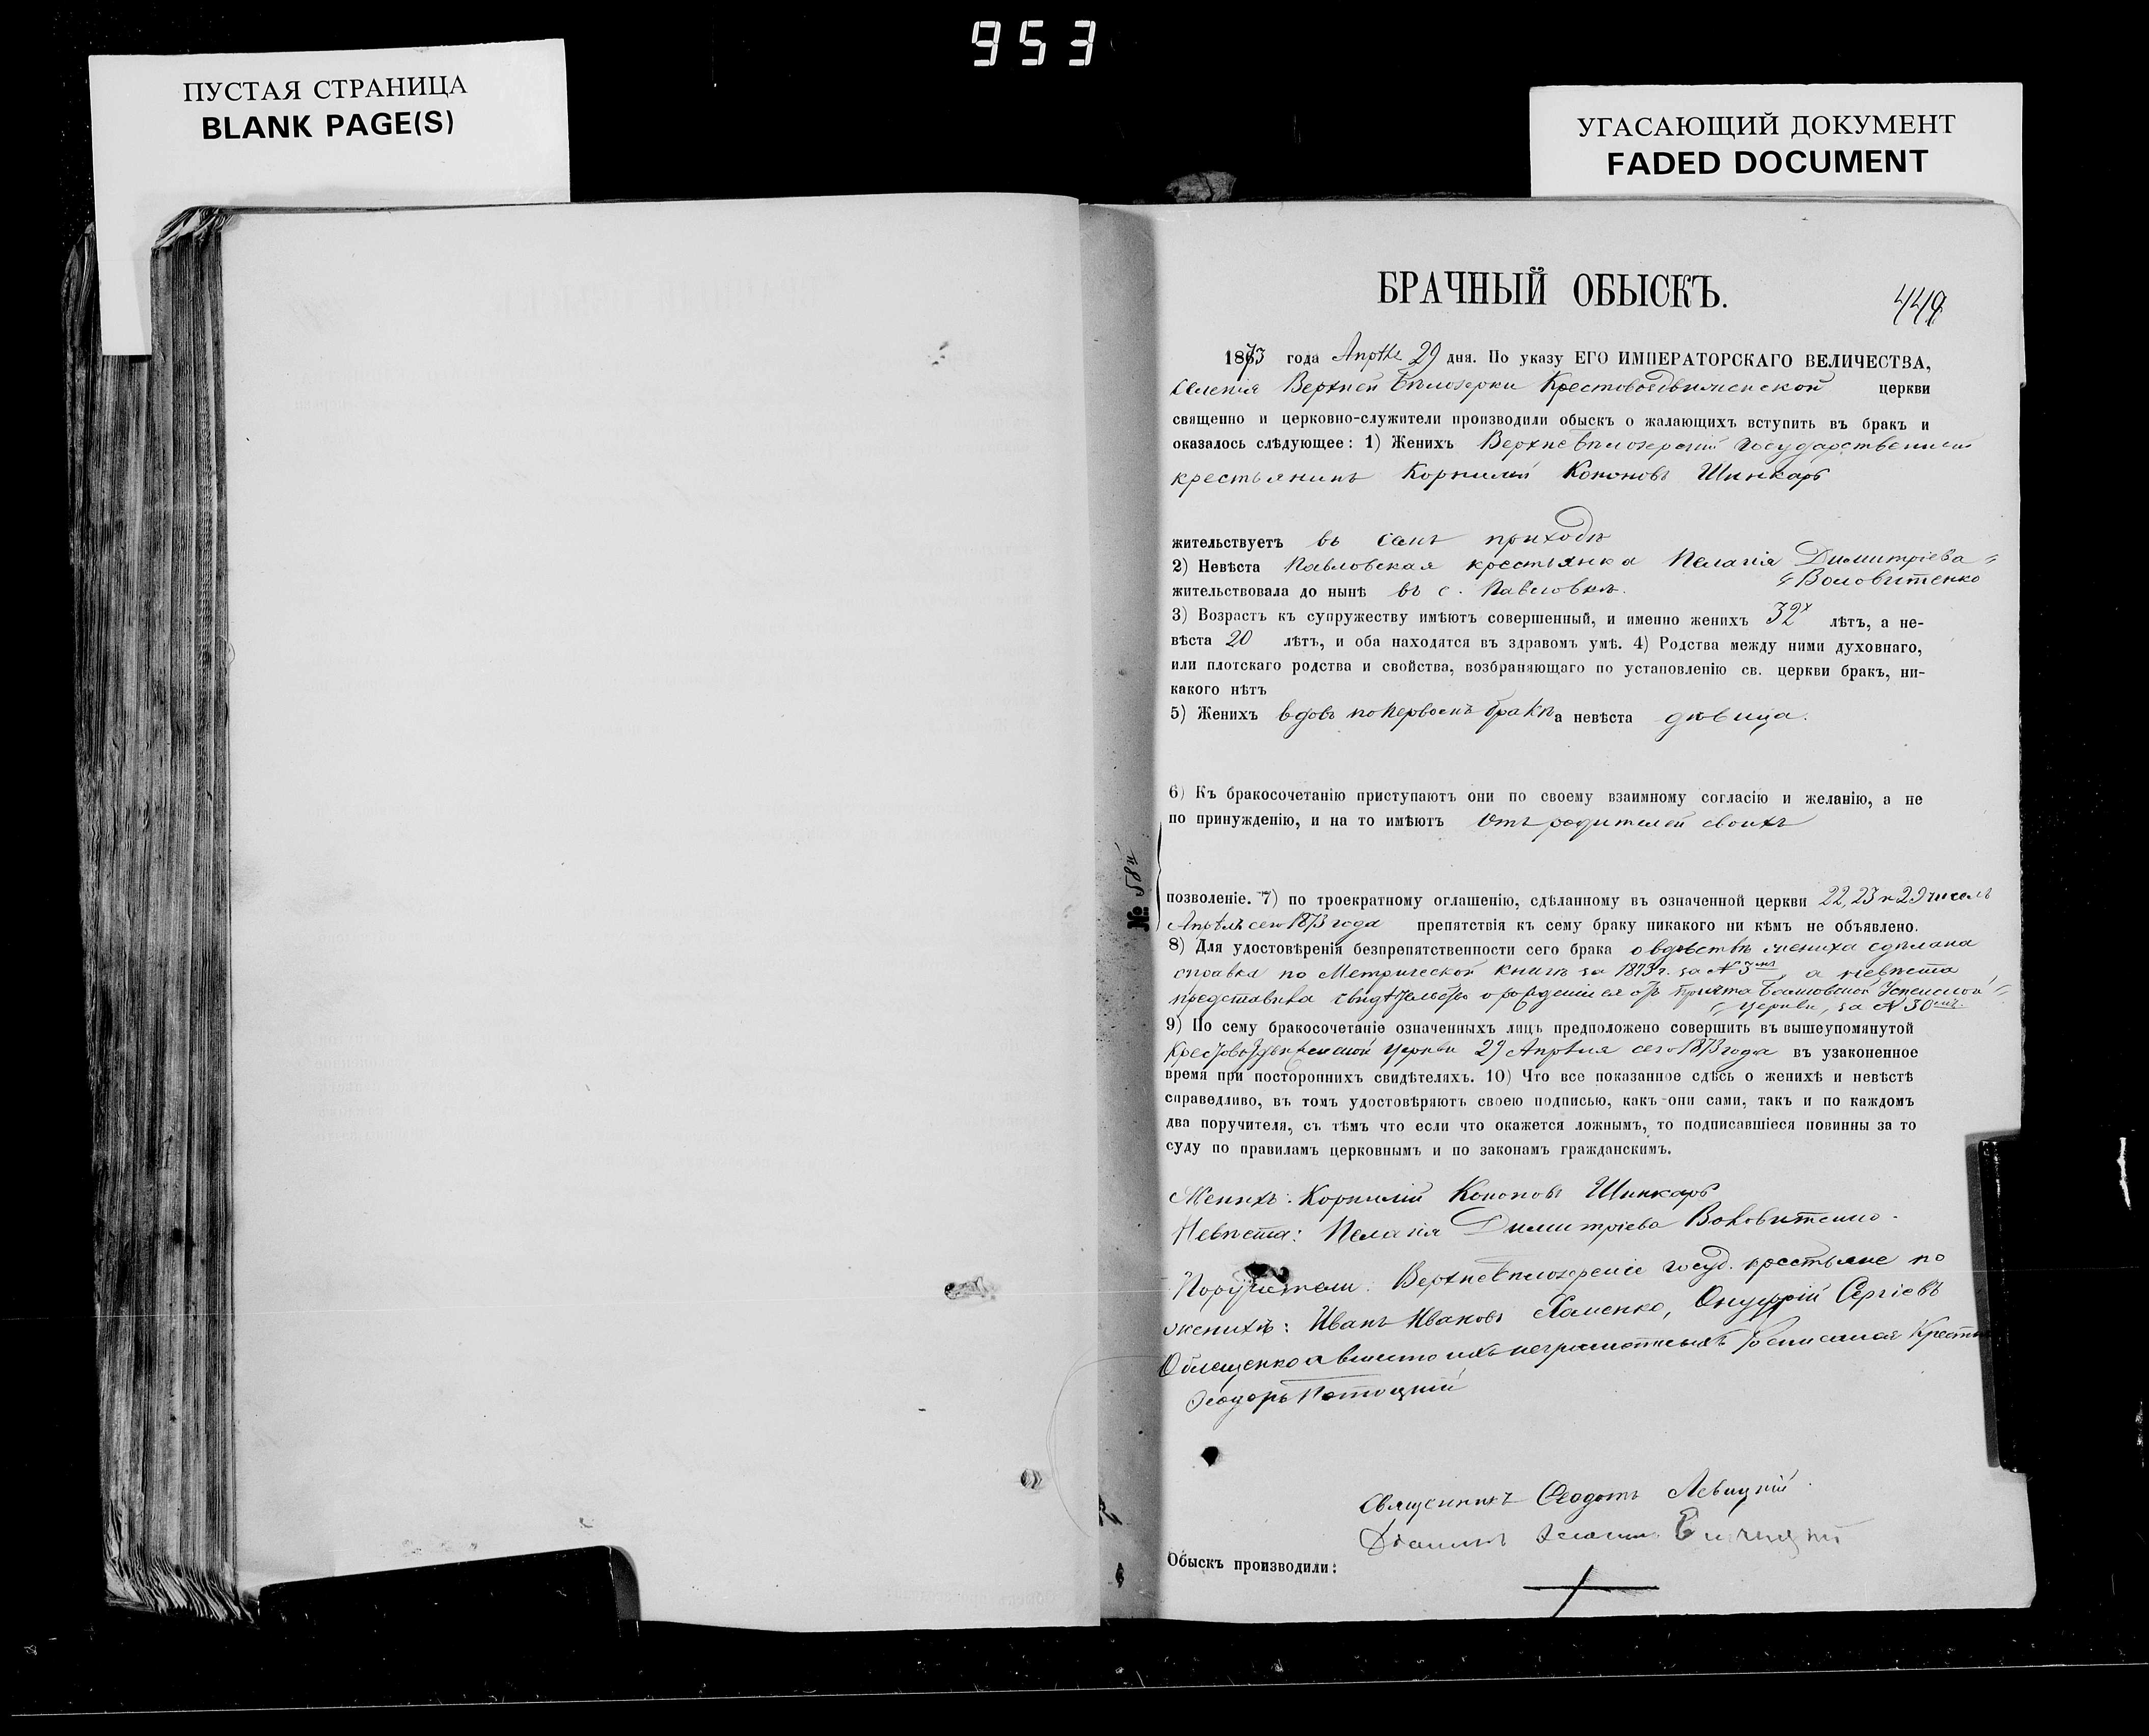 953
ПУСТАЯ СТРАНИЦА
BLANK PAGE(S)
УГАСАЮЩИЙ ДОКУМЕНТ
FADED DOCUMENT
БРАЧНЫЙ ОБЫСКЪ.
449
1873 года Апрѣля 29 дня. По указу ЕГО ИМПЕРАТОРСКАГО ВЕЛИЧЕСТВА,
селенія Верхней Бѣлозерки Крестовоздвиженской церкви
священно и церковно-служители производили обыскъ о жалающихъ вступить въ бракъ и
оказалось слѣдующее: 1) Женихъ Верхнебѣлозерскій государственный
крестьянинъ Корнилій Кононовъ Шинкарь
жительствуетъ въ семъ приходѣ
2) Невѣста Павловская крестьянка Пелагія Димитріева
Воловитенко
жительствовала до нынѣ въ с. Павловкѣ.
3) Возрастъ къ супружеству имѣютъ совершенный, и именно женихъ 32х лѣтъ, а не-
вѣста 20 лѣтъ, и оба находятся въ здравомъ умѣ. 4) Родства между ними духовнаго,
или плотскаго родства и свойства, возбраняющаго по установленію св. церкви бракъ, ни-
какого нѣтъ
5) Женихъ вдовъ по первомъ бракѣ а невѣста дѣвица.
6) Къ бракосочетанію приступаютъ они по своему взаимному согласію и желанію, а не
по принужденію, и на то имѣютъ отъ родителей своихъ
№ 58й
позволеніе. 7) по троекратному оглашенію, сдѣланному въ означенной церкви 22, 23 и 29 чиселъ
Апрѣля сего 1873 года препятствія къ сему браку никакого ни кѣмъ не объявлено.
8) Для удостовѣренія безпрепятственности сего брака о вдовствѣ жениха сдѣлана
справка по Метрической книгѣ за 1873 г. за № 3мъ, а невѣста
представила свидѣтельство о рожденіи ея отъ причта Успенской
церкви, за № 30мъ.
9) По сему бракосочетаніе означенныхъ лицъ предположено совершить въ вышеупомянутой
Крестовоздвиженской церкви 29 Апрѣля сего 1873 года въ узаконенное
время при постороннихъ свидѣтеляхъ. 10) Что все показанное сдѣсь о женихѣ и невѣстѣ
справедливо, въ томъ удостовѣряютъ своею подписью, какъ они сами, такъ и по каждомъ
два поручителя, съ тѣмъ что если что окажется ложнымъ, то подписавшіеся повинны за то
суду по правиламъ церковнымъ и по законамъ гражданскимъ.
Женихъ: Корнилій Кононовъ Шинкарь
Невѣста: Пелагія Димитріева Воловитенко.
Поручители: Верхнебѣлозерскіе госуд. крестьяне по
женихѣ: Иванъ Ивановъ Онуфрій Сергіевъ
а вмѣсто ихъ неграмотныхъ росписался Крестьян
Ѳеодоръ Потоцкій
Священникъ Ѳеодотъ Левицкій.
Обыскъ производили: